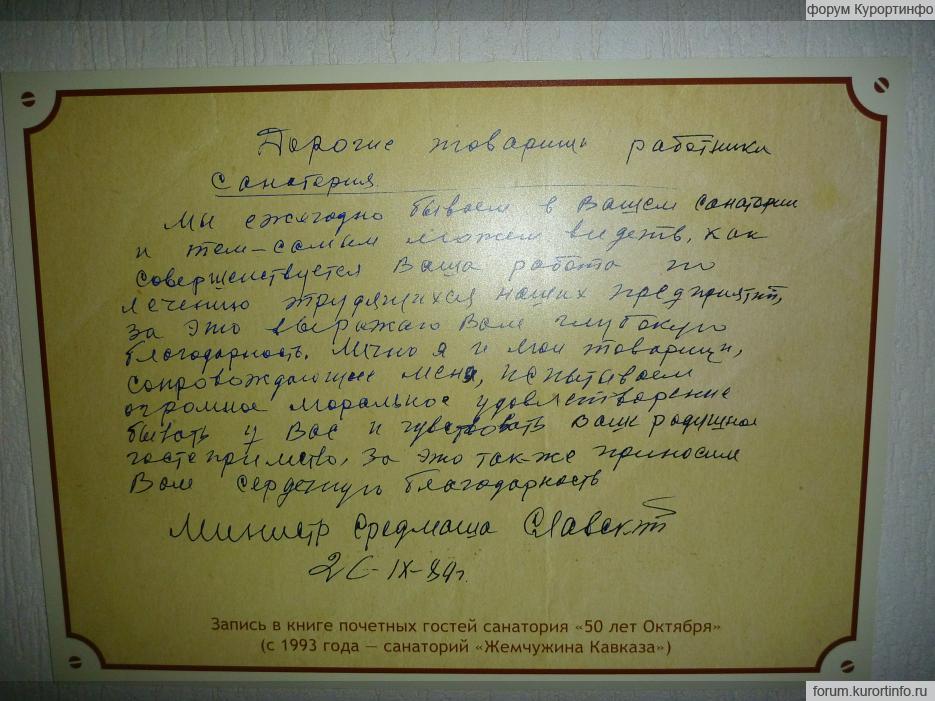 форум Курортинфо
Дорогие товарищи работники
санатория
Мы ежегодно бываем в Вашем санатории
и тем-самым можем видеть, как
совершенствуется Ваша работа по
лечению трудящихся наших предприятий,
за это выражаю Вам глубокую
благодарность. Лично я и мои товарищи,
сопровождающие меня, испытываем
огромное моральное удовлетворение
бывать у Вас и чувствовать Ваше радушное
гостеприимство, за это также приносим
Вам сердечную благодарность
Министр Средмаша Славский
IX-
Запись в книге почетных гостей санатория «50 лет Октября»
(с 1993 года — санаторий «Жемчужина Кавказа»)
forum.kurortinfo.ru